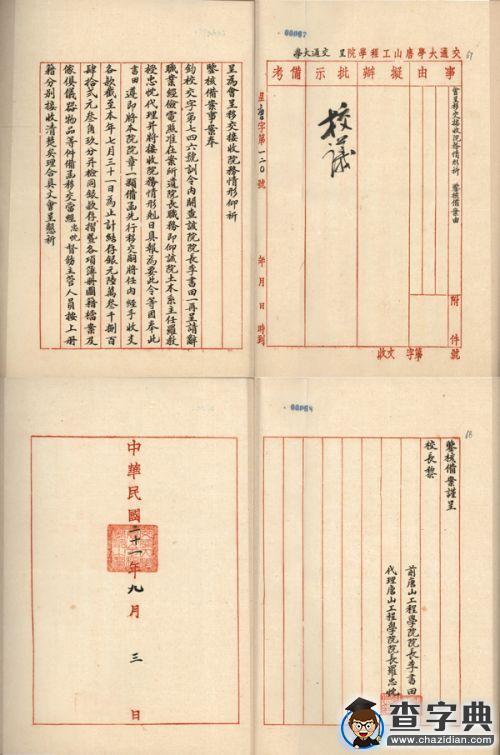 00067
67
交通大學唐山工程學院呈 交通大學
事由
擬辦
批示
備考
會呈移交接收院務情形祈 鑒核備案由
校議
附件
號
字第
收文
呈唐字第一二〇號
年 月 日 時到
呈為會呈移交接收院務情形仰祈
鑒核備案事案奉
鈞校文字第七四六號訓令內開查該院院長李書田一再呈請辭
職業經檢電照准在案所遺院長職務即仰該院土木系主任羅教
授忠忱代理并將接收院務情形剋日具報為要此令等因奉此
書田遵即將本院院章一顆備函先行移交嗣將任內經手收支
各款截至本年七月三十一日為止計結存銀元陸萬叁千捌百
肆拾貳元叁角玖分并檢同銀款存摺暨各項簿冊圖籍檔案及
傢俱儀器物品等件備函移交當經忠忱督飭主管人員按上冊
籍分別接收清楚矣理合具文會呈懇祈
00068
68
鑒核備案謹呈
校長黎
前唐山工程學院院長李書田
代理唐山工程學院院長羅忠忱
中華民國二十一年九月三日
查字典
www.chazidian.com